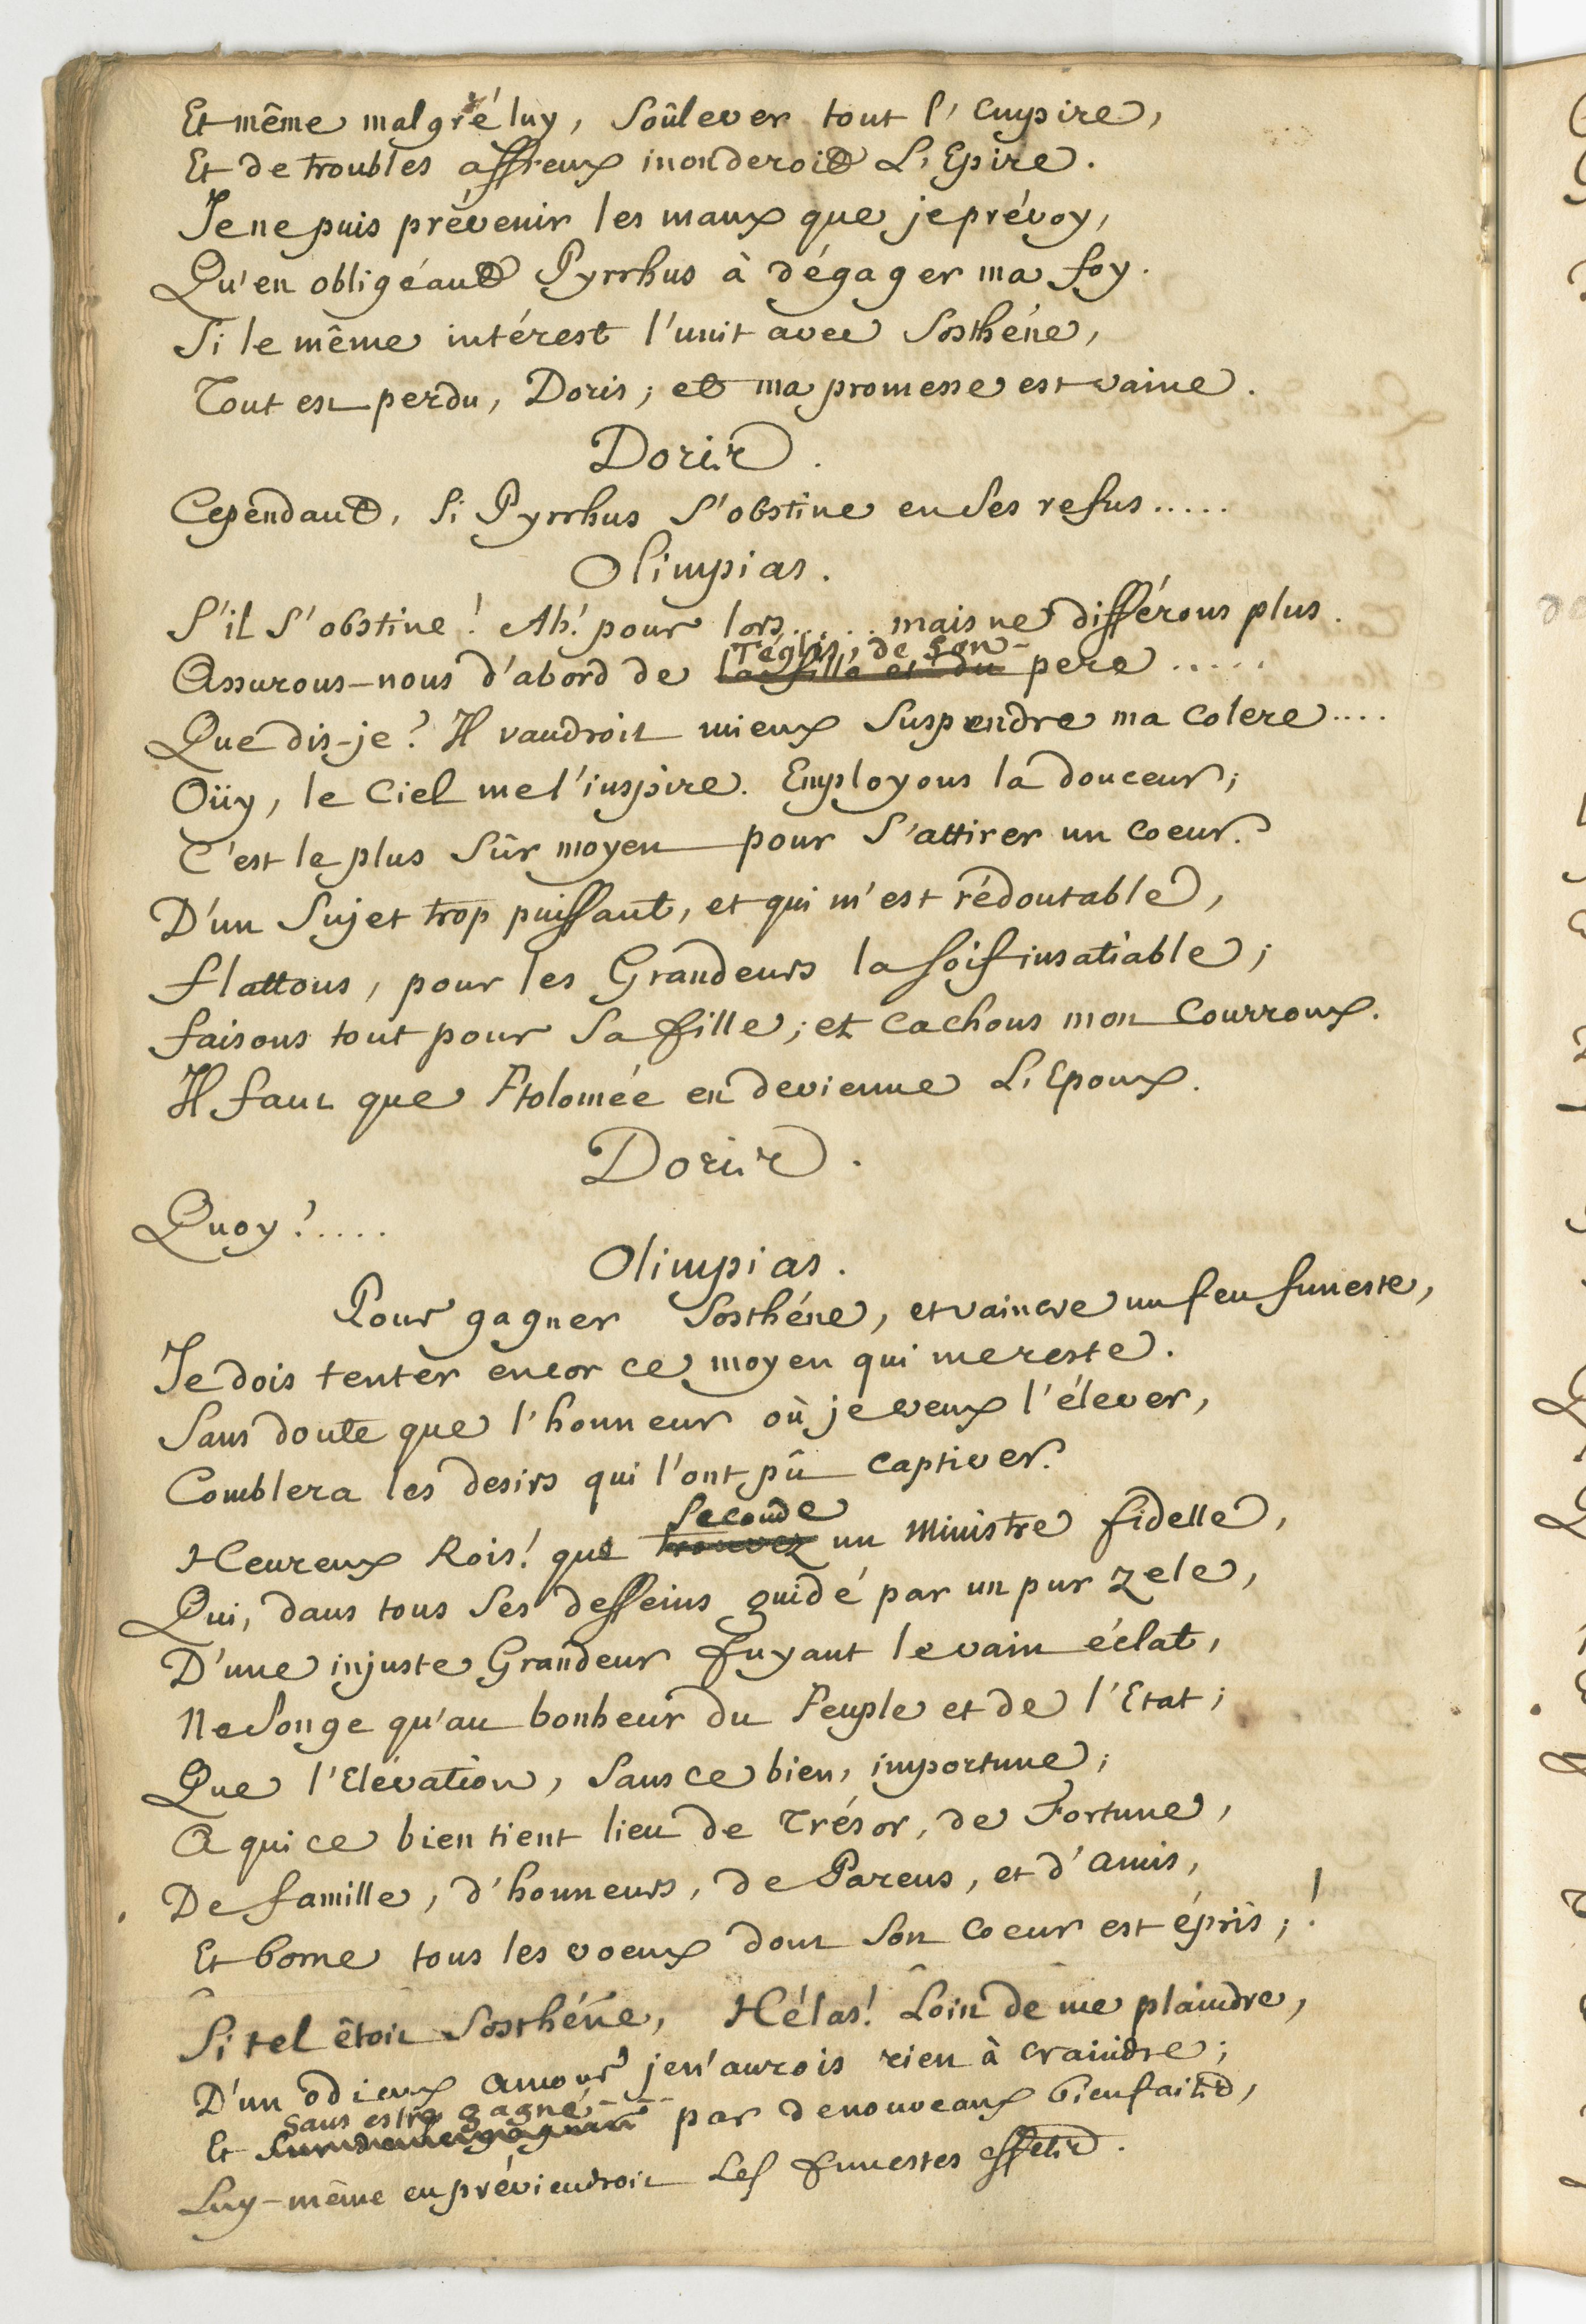 Et même malgré luy, Soûlever tout l'empire,
Et de troubles affreux inonderoit L'Epire.
Je ne puis prévenir les maux que je prévoy,
Qu'en obligéant Pyrrhus à dégager ma foy.
Si le même intérest l'unit avec Sosthéne,
Tout est perdu, Doris; et ma promesse est vaine.
Doris.
Cependant, Si Pyrrhus S'obstine en Ses refus.....
Olimpias.
S'il S'obstine! Ah! pour lors..... mais ne différons plus.
Téglis, de Son-
Assurons-nous d'abord de la fille et du pere.....
Que dis-je? Il vaudroit mieux Suspendre ma colere....
Oüy, le Ciel me l'inspire. Employons la douceur;
C'est le plus Sûr moyen pour S'attirer un coeur.
D'un Sujet trop puissant, et qui m'est rédoutable,
flattons, pour les Grandeurs la soif insatiable;
faisons tout pour Sa fille; et cachons mon Courroux.
Il faut que Ptolomée en devienne L'Epoux.
Doris.
Quoy!.....
Olimpias.
Pour gagner Sosthéne, et vaincre un feu funeste,
Je dois tenter encor ce moyen qui me reste.
Sans doute que l'honneur où je veux l'élever,
Comblera les desirs qui l'ont pû captiver.
Seconde
Heureux Rois! que trouvez un Ministre fidelle,
Qui, dans tous Ses desseins guidé par un pur zele,
D'une injuste Grandeur fuyant le vain éclat,
Ne Songe qu'au bonheur du Peuple et de l'Etat;
Que l'Elévation, Sans ce bien, importune;
A qui ce bien tient lieu de Trésor, de Fortune,
De famille, d'honneurs, de Parens, et d'amis,
Et borne tous les voeux dont Son coeur est épris;!
Si tel étoit Sosthéne, Hélas! Loin de me plaindre,
D'un odieux amour je n'aurois rien à craindre;
Sans estre gagné---
Et par de nouveaux bienfaits,
Luy-même en préviendroit Les funestes effets.